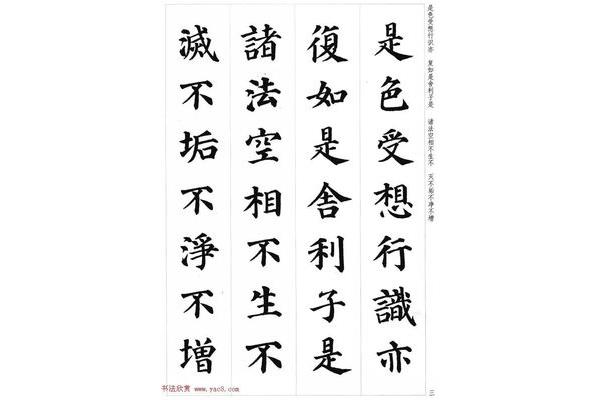 是色受想行識亦
復如是舎利子是
諸法空相不生不
滅不垢不淨不増
是色受想行识亦 复如是舍利子是 诸法空相不生不 灭不垢不净不增
三
书法欣赏 www.yac8.com